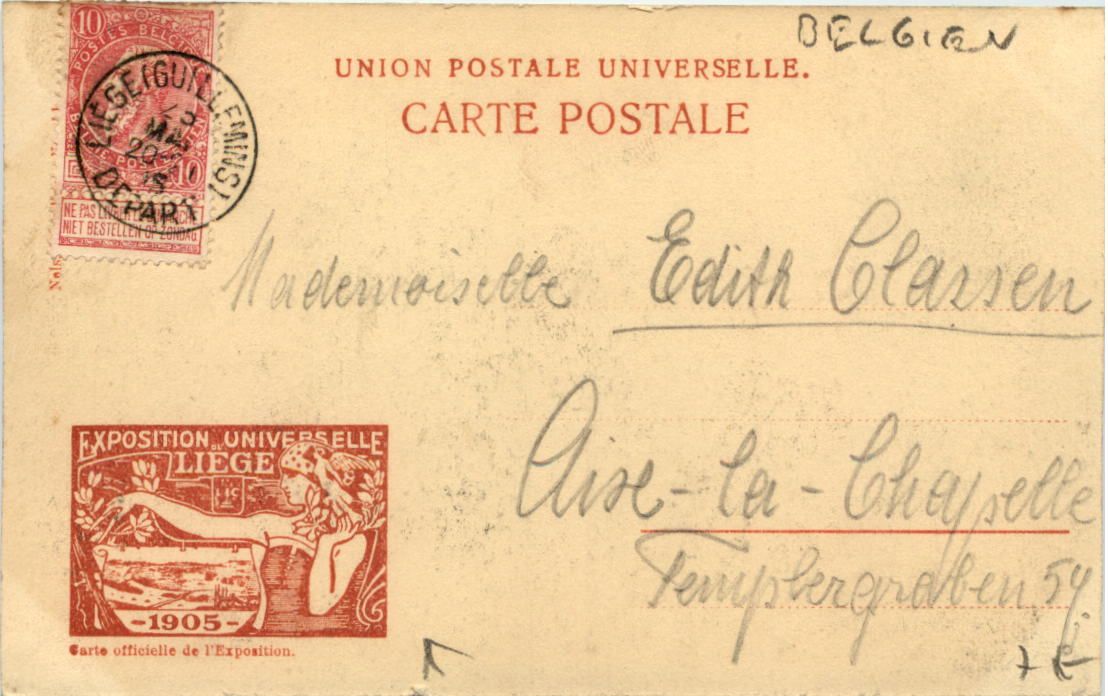 BELGIEN
UNION POSTALE UNIVERSELLE.
CARTE POSTALE
10
POSTES BELG
10
LIÉGE (GUILLEMINS)
MAI
20
DÉPART
NE PAS LIVRER LE DIMANCHE
NIET BESTELLEN OP ZONDAG
Nels
Mademoiselle Edith Classen
Aixe-la-Chapelle
Templergraben 54.
EXPOSITION UNIVERSELLE
LIÉGE
-1905-
Carte officielle de l'Exposition.